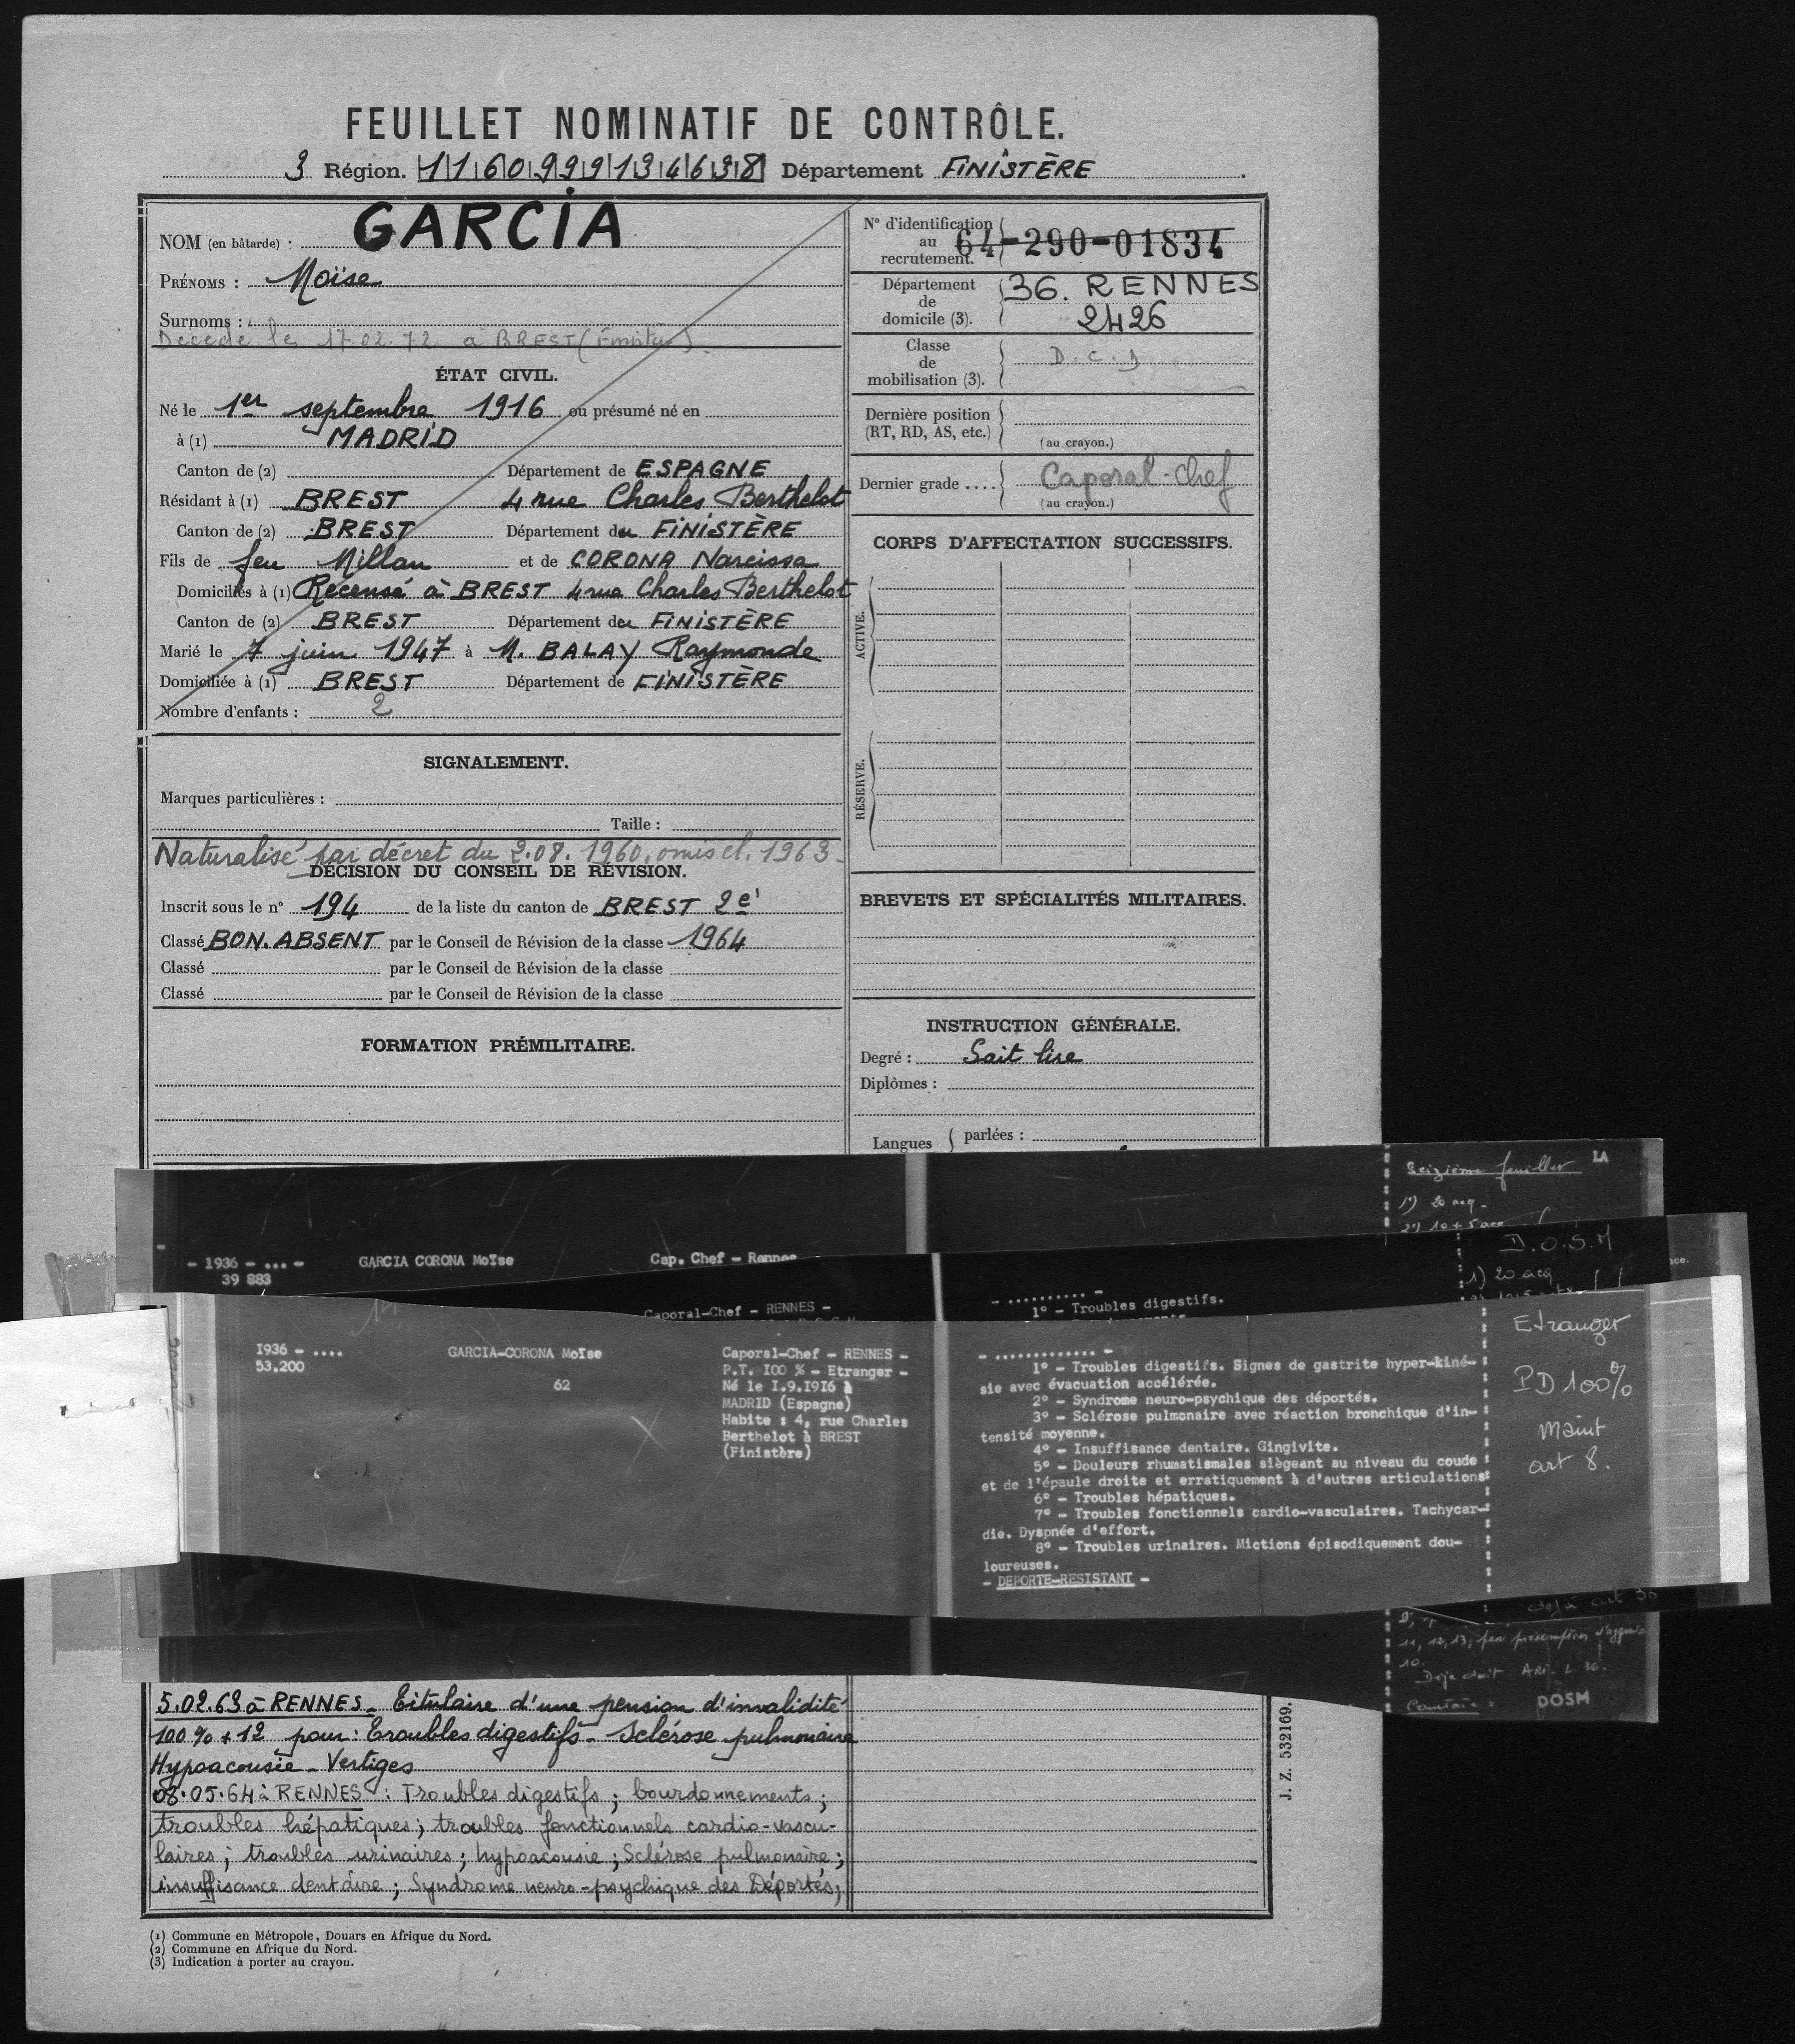 FEUILLET NOMINATIF DE CONTRÔLE.
3 Région. 1160999134638 Département FINISTÈRE
NOM (en bâtarde) : GARCIA
PRÉNOMS : Moïse
Surnoms :
Décédé le 17.02.72 à BREST (Finistère).
ÉTAT CIVIL.
Né le 1er septembre 1916 ou présumé né en
à (1) MADRID
Canton de (2) Département de ESPAGNE
Résidant à (1) BREST 4 rue Charles Berthelot
Canton de (2) BREST Département du FINISTÈRE
Fils de feu Millan et de CORONA Narcissa
Domiciliés à (1) Recensé à BREST 4 rue Charles Berthelot
Canton de (2) BREST Département du FINISTÈRE
Marié le 7 juin 1947 à M. BALAY Raymonde
Domiciliée à (1) BREST Département de FINISTÈRE
Nombre d'enfants : 2
SIGNALEMENT.
Marques particulières :
Taille :
Naturalisé par décret du 2.08.1960, omis cl. 1963.
DÉCISION DU CONSEIL DE RÉVISION.
Inscrit sous le n° 194 de la liste du canton de BREST 2e
Classé BON. ABSENT par le Conseil de Révision de la classe 1964
Classé par le Conseil de Révision de la classe
Classé par le Conseil de Révision de la classe
FORMATION PRÉMILITAIRE.
N° d'identification
au
recrutement.
64-290-01834
Département
de
domicile (3).
36. RENNES
2426
Classe
de
mobilisation (3).
D.C.J
Dernière position
(RT, RD, AS, etc.)
(au crayon.)
Dernier grade .... Caporal-chef
(au crayon.)
CORPS D'AFFECTATION SUCCESSIFS.
ACTIVE.
RÉSERVE.
BREVETS ET SPÉCIALITÉS MILITAIRES.
INSTRUCTION GÉNÉRALE.
Degré : Sait lire
Diplômes :
Langues parlées :
Seizième feuillet LA
1°) 20 acq -
2°) 10 + 5 acq
- 1936 - ... -
39 883
GARCIA CORONA Moïse
Cap. Chef - Rennes
D.O.S.M
1) 20 acq
Caporal-Chef - RENNES -
- .......... -
1° - Troubles digestifs.
I936 - ....
53.200
GARCIA-CORONA Moïse
62
Caporal-Chef - RENNES -
P.T. I00 % - Etranger -
Né le I.9.I9I6 à
MADRID (Espagne)
Habite : 4, rue Charles
Berthelot à BREST
(Finistère)
- ............. -
1° - Troubles digestifs. Signes de gastrite hyper-kiné-
sie avec évacuation accélérée.
2° - Syndrome neuro-psychique des déportés.
3° - Sclérose pulmonaire avec réaction bronchique d'in-
tensité moyenne.
4° - Insuffisance dentaire. Gingivite.
5° - Douleurs rhumatismales siègeant au niveau du coude
et de l'épaule droite et erratiquement à d'autres articulations
6° - Troubles hépatiques.
7° - Troubles fonctionnels cardio-vasculaires. Tachycar-
die. Dyspnée d'effort.
8° - Troubles urinaires. Mictions épisodiquement dou-
loureuses.
- DEPORTE-RESISTANT -
Etranger
PD 100%
Maint
art 8.
déjà art 36
11, 12, 13, par présomption d'aggrav=
10.
Déjà droit Art. L 36.
DOSM
5.02.63 à RENNES - Titulaire d'une pension d'invalidité
100 % + 12 pour : Troubles digestifs - Sclérose pulmonaire
Hypoacousie - Vertiges
08.05.64 à RENNES : Troubles digestifs ; bourdonnements ;
troubles hépatiques ; troubles fonctionnels cardio-vascu-
laires ; troubles urinaires ; hypoacousie ; Sclérose pulmonaire ;
insuffisance dentaire ; Syndrome neuro-psychique des Déportés ;
J. Z. 532169.
(1) Commune en Métropole, Douars en Afrique du Nord.
(2) Commune en Afrique du Nord.
(3) Indication à porter au crayon.